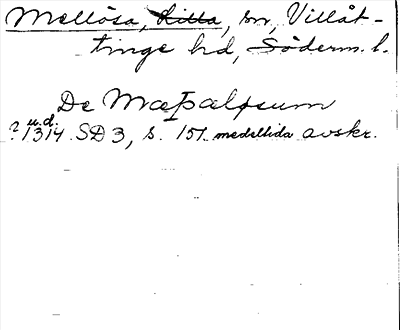 Mellösa, Lilla, sn, Villåt-
tinge hd, Söderm. l.
De Mæþaløsum
? u.d. 1314 SD 3, s. 151 medeltida avskr.